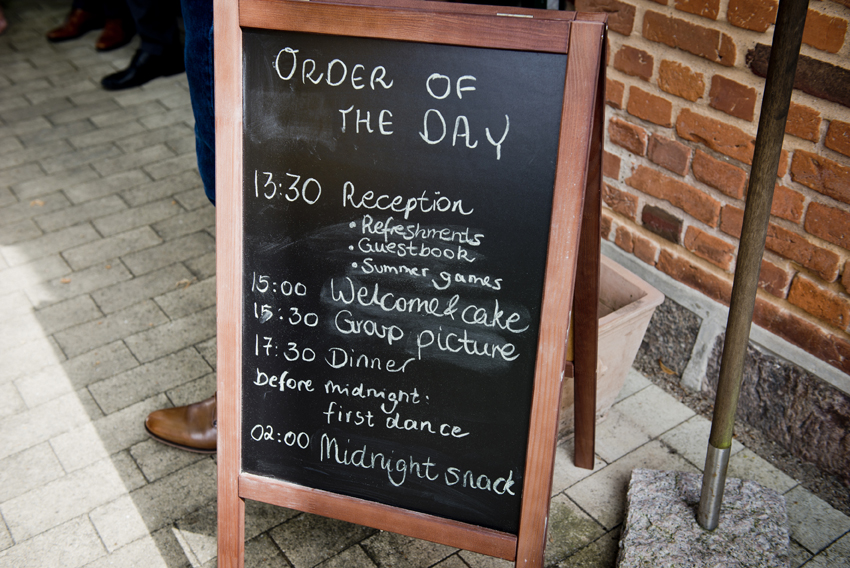 ORDER OF
THE DAY
13:30 Reception
• Refreshments
• Guestbook
• Summer games
15:00 Welcome & cake
15:30 Group picture
17:30 Dinner
before midnight:
first dance
02:00 Midnight snack